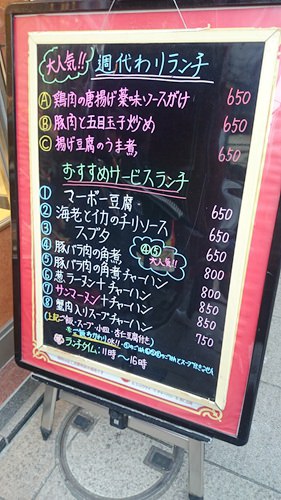 大人気!!
週代わりランチ
Ⓐ 鶏肉の唐揚げ薬味ソースがけ 650
Ⓑ 豚肉と五目玉子炒め 650
Ⓒ 揚げ豆腐のうま煮 650
おすすめサービスランチ
① マーボー豆腐 650
② 海老とイカのチリソース 650
③ スブタ 650
④ 豚バラ肉の角煮 800
⑤ 豚バラ肉の角煮チャーハン 800
④⑤大人気!!
⑥ 葱ラーメン+チャーハン 850
⑦ サンマーメン+チャーハン 850
⑧ 蟹肉入りスープチャーハン 750
(上記ご飯・スープ・小皿・杏仁豆腐付き)
ランチタイム:11時~16時